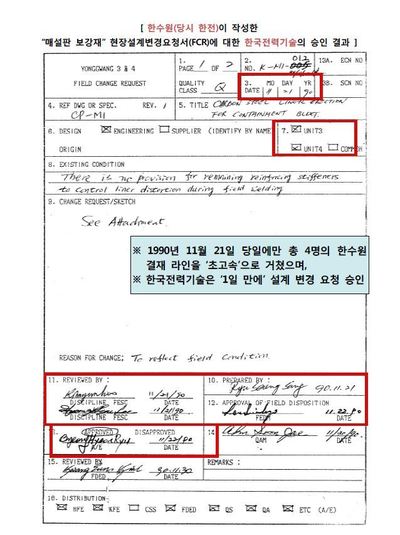 [ 한수원(당시 한전)이 작성한
"매설판 보강재" 현장설계변경요청서(FCR)에 대한 한국전력기술의 승인 결과 ]
YONGGWANG 3 & 4
FIELD CHANGE REQUEST
1. PAGE 1 OF 2
2. NO. K-M1-
13A. SCN NO
QUALITY CLASS Q
3. MO DAY YR
DATE 11 21 90
13B. SCN NO
4. REF DWG OR SPEC. REV. 1
CP-M1
5. TITLE CARBON STEEL LINER ERECTION
FOR CONTAINMENT BLDG.
6. DESIGN ORIGIN
ENGINEERING SUPPLIER (IDENTIFY BY NAME)
7. UNIT3
UNIT4 COMMON
8. EXISTING CONDITION
There is no provision for remaining reinforcing stiffeners
to control liner distortion during field welding
9. CHANGE REQUEST/SKETCH
See Attachment
※ 1990년 11월 21일 당일에만 총 4명의 한수원
결재 라인을 '초고속'으로 거쳤으며,
※ 한국전력기술은 '1일 만에' 설계 변경 요청 승인
REASON FOR CHANGE: To reflect field condition
11. REVIEWED BY :
11/21/90
DISCIPLINE FESC DATE
11/21/90
DISCIPLINE FESC DATE
10. PREPARED BY :
90.11.21
12. APPROVAL OF FIELD DISPOSITION
11.22.90
FEDM DATE
13. APPROVED DISAPPROVED
11/22/90
KFE DATE
14.
QAM DATE
15. REVIEWED BY
90.11.30
REMARKS :
16. DISTRIBUTION:
NFE KFE CSS FDED QS QA ETC (A/E)